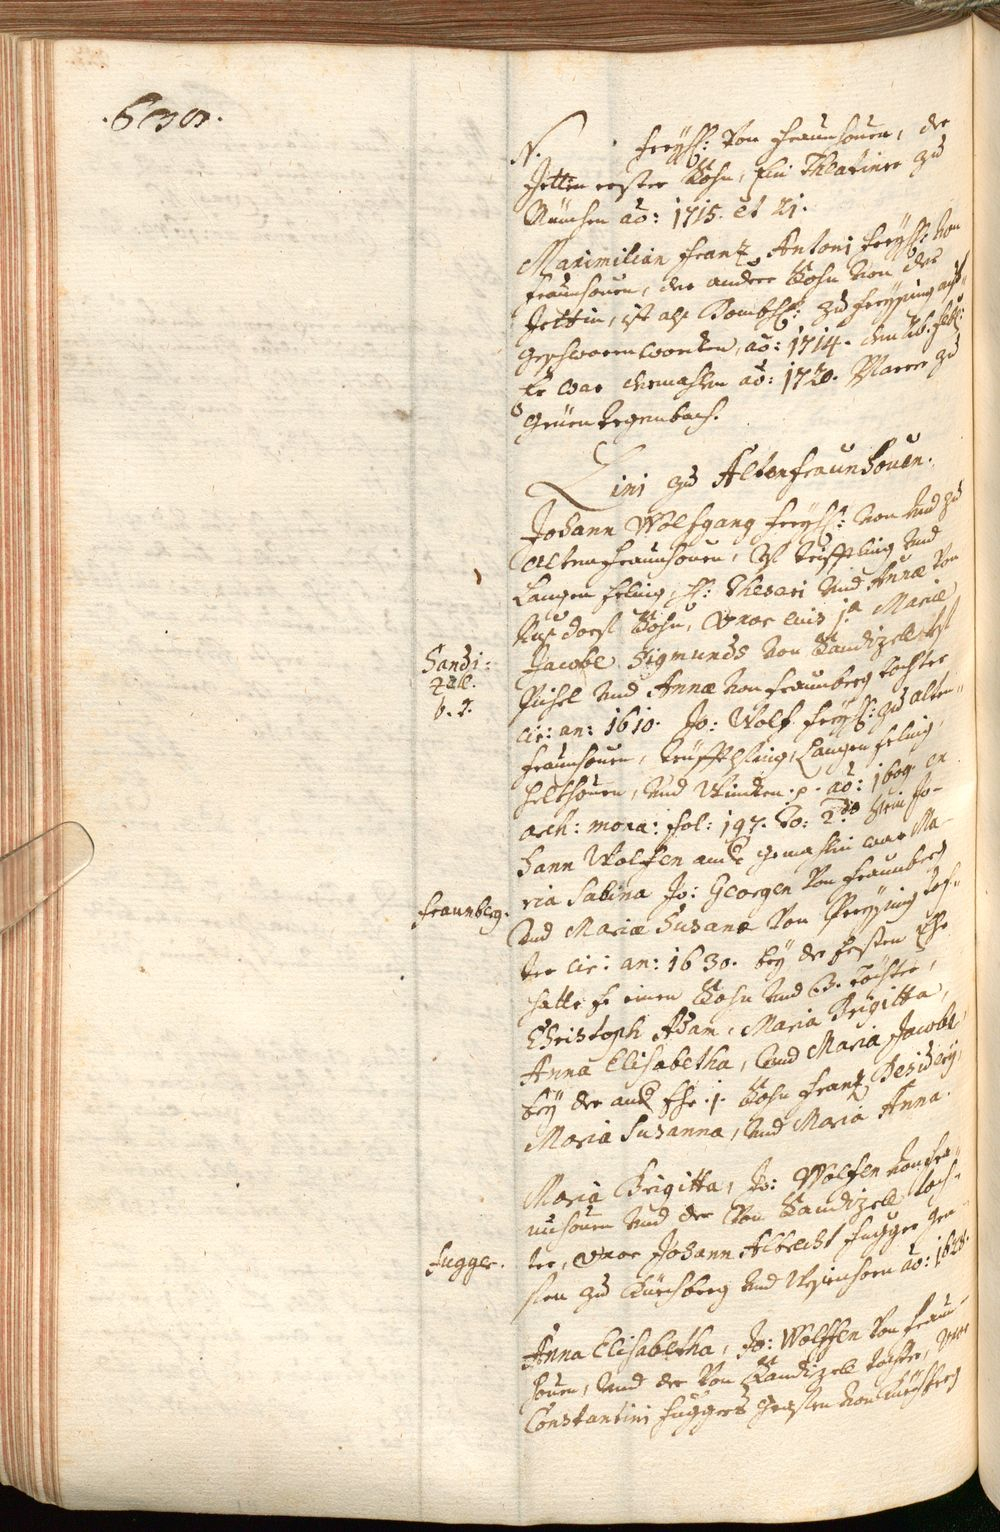 .600.
N. freyh: von fraunhouen, der
Jettin erster Sohn, Ein Theatiner zu
München aō: 1715. et 21.
Maximilian Frantz Antoni freyh: von
fraunhouen, der andere Sohn von der
Jettin, ist als Dombh: zu freysing auf-
geschworen worden, aō: 1714. den 26.
Er war damahlen aō: 1720. Pfarrer zu
Grüen tegenbach.
Lini zu Altenfraunhouen.
Johann Wolfgang freyh: von und zu
Altenfraunhouen, und
Langen, H: Thesari und Annæ von
Nusdorf Sohn, vxor eius 1.a Maria
Jacobe Sigmunds von Sandizell
und Annæ von fraunberg tochter
Sandi:
zell.
v. s.
cir: an: 1610. Jo: Wolf freyh: zu alten-
fraunhouen, Langen
und .p. aō: 1609. ex
arch: mona: fol: 197. to: 2.do Jo-
hann Wolfen and gemahlin war Ma-
ria Sabina Jo: Georgen von fraunberg
fraunberg.
und Mariæ Susanæ von Preysing toch-
ter cir: an: 1630. bey der Ersten Ehe
hatte Er einen Sohn und 3. töchter,
Christoph Adam, Maria Brigitta,
Anna Elisabetha, und Maria Jacobe
bey der and Ehe .1. Sohn frantz Desidery,
Maria Susanna, und Maria Anna.
Maria Brigitta, Jo: Wolfen von fra-
unhouen und der von Sandizell toch-
ter, vxor Johann Albrecht fugger gra-
fugger.
fen zu Kürchberg und Weissenhorn aō: 1628.
Anna Elisabetha, Jo: Wolffen von fraun-
houen, und der von Sandizell tochter, vxor
Constantini fuggers grafen von Kürchberg